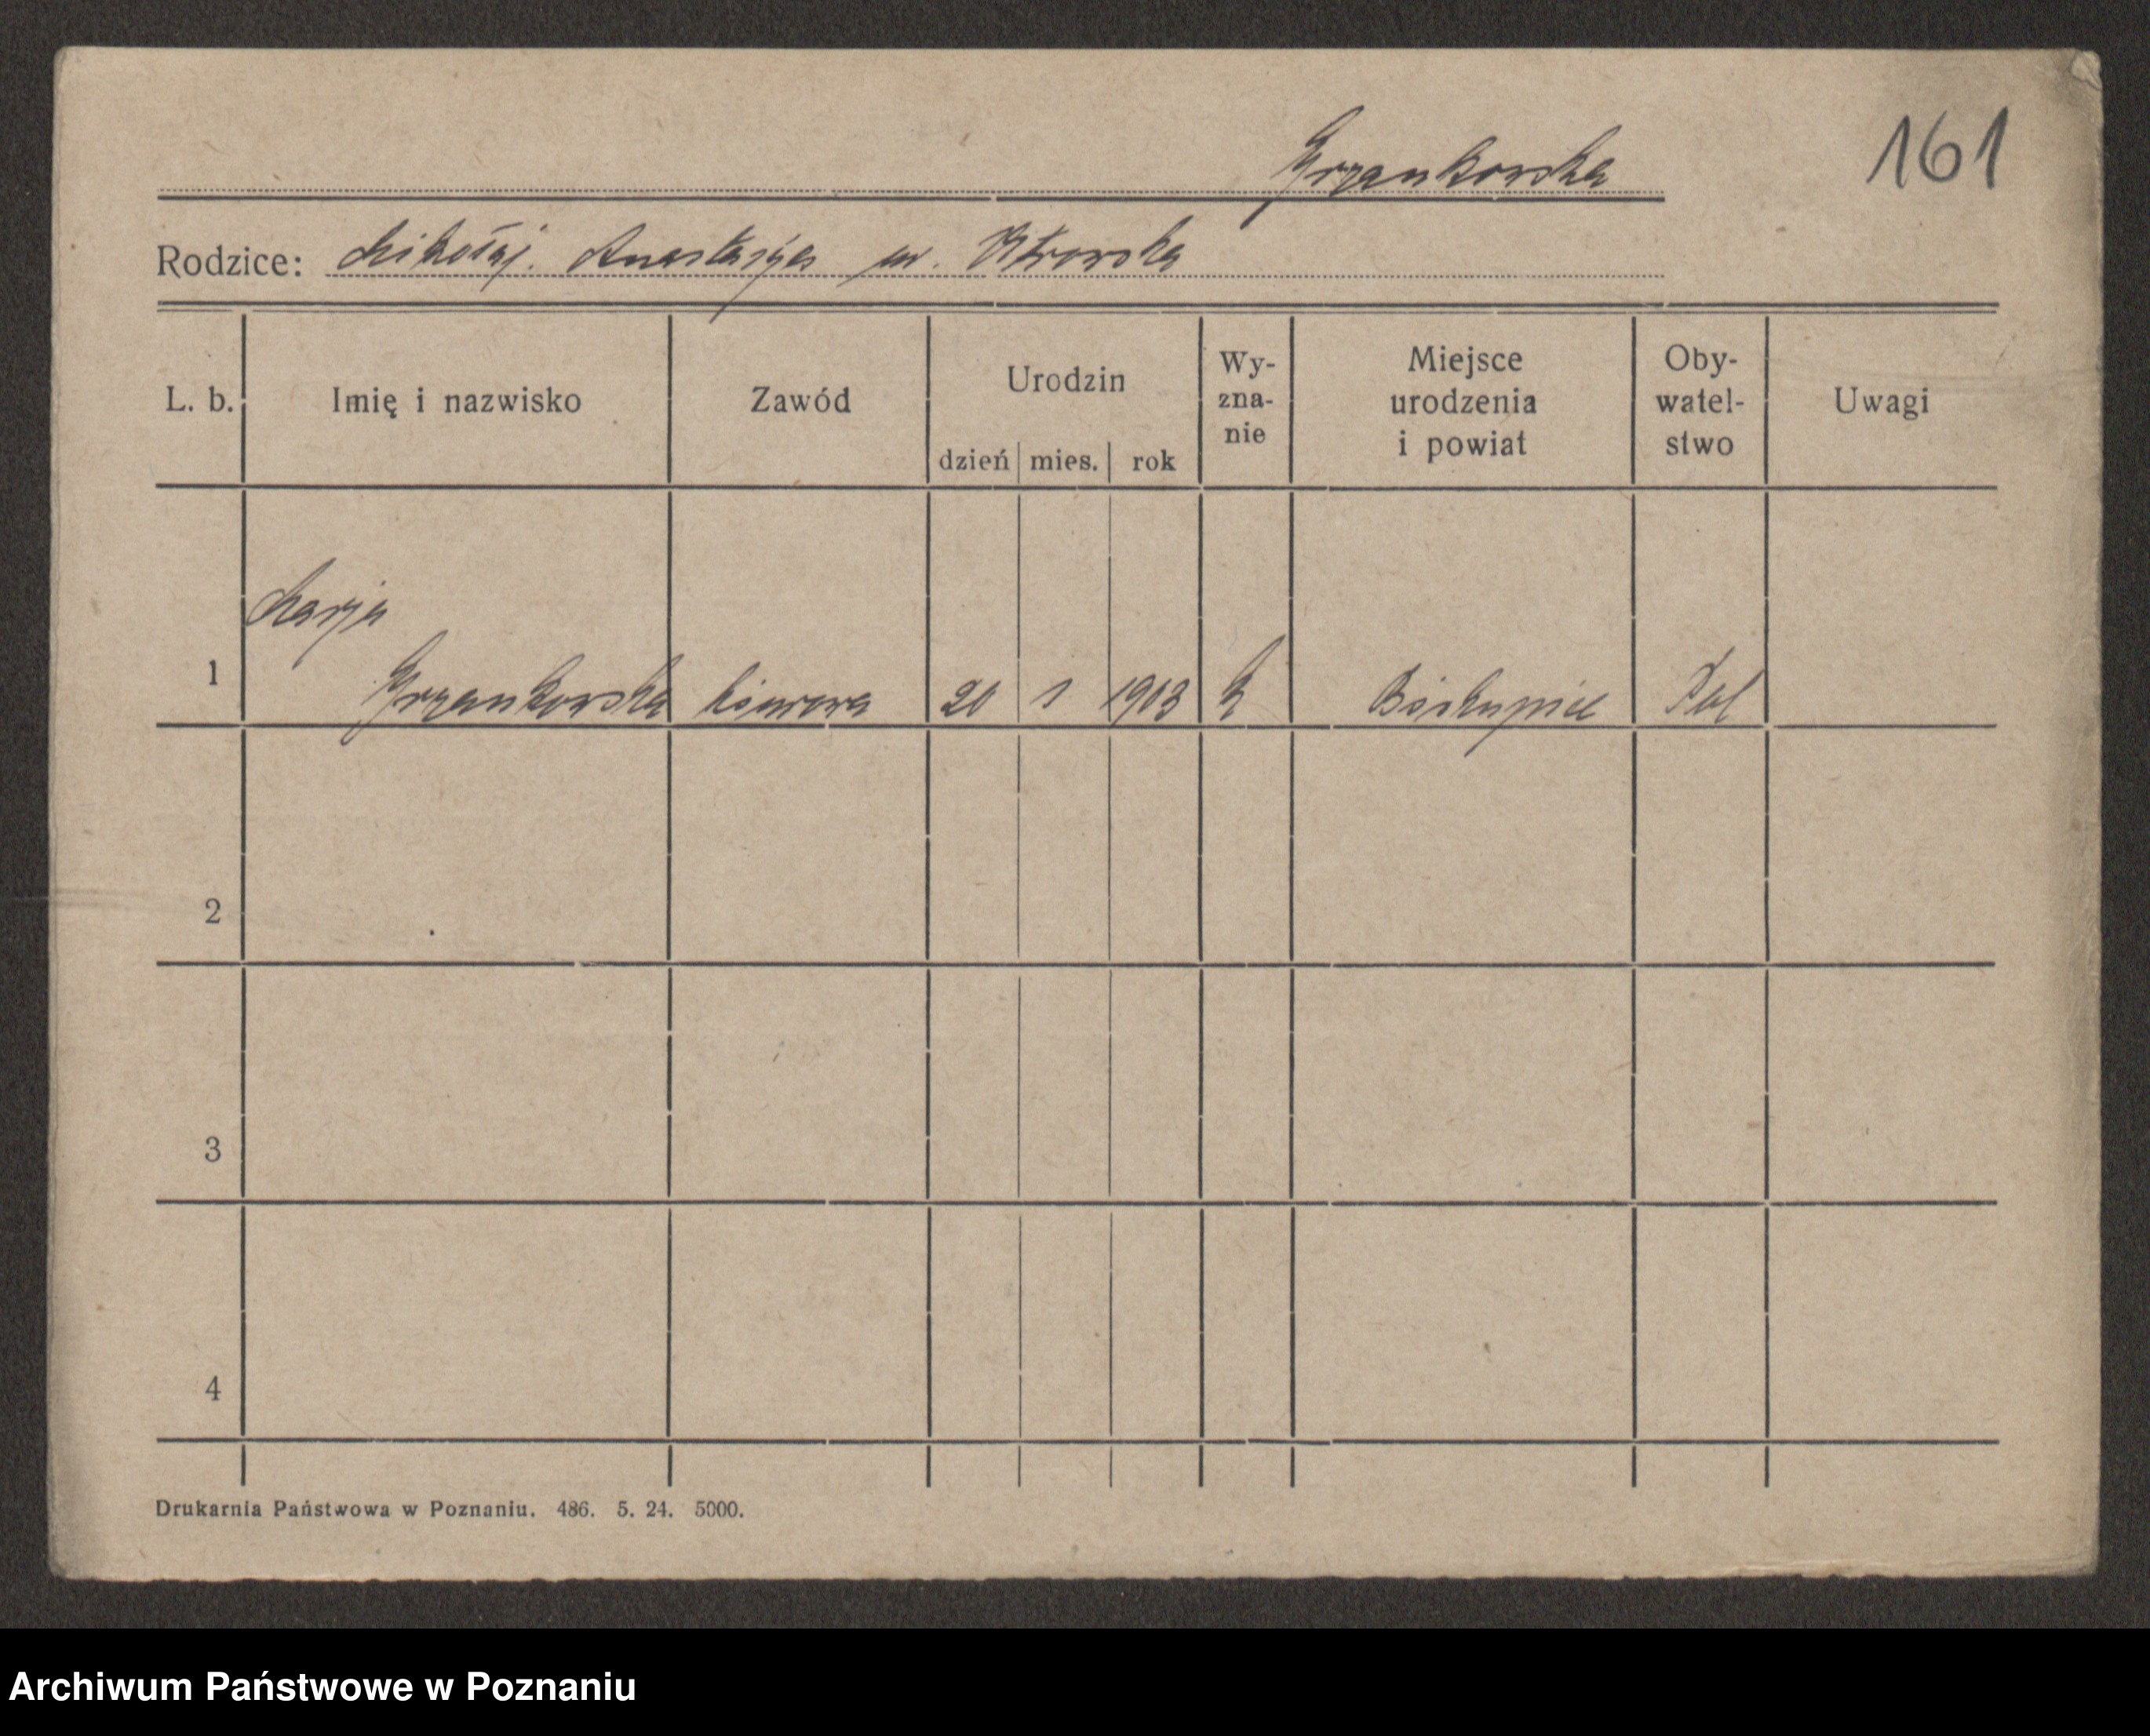 161
Grzankowska
Rodzice: Mikołaj. Anastazja ur.
L. b. Imię i nazwisko Zawód Urodzin dzień mies. rok Wy-zna-nie Miejsce urodzenia i powiat Oby-watel-stwo Uwagi
Marja
1 Grzankowska biurowa 20 1 1903 k Biskupice Pol
2
3
4
Drukarnia Państwowa w Poznaniu. 486. 5. 24. 5000.
Archiwum Państwowe w Poznaniu